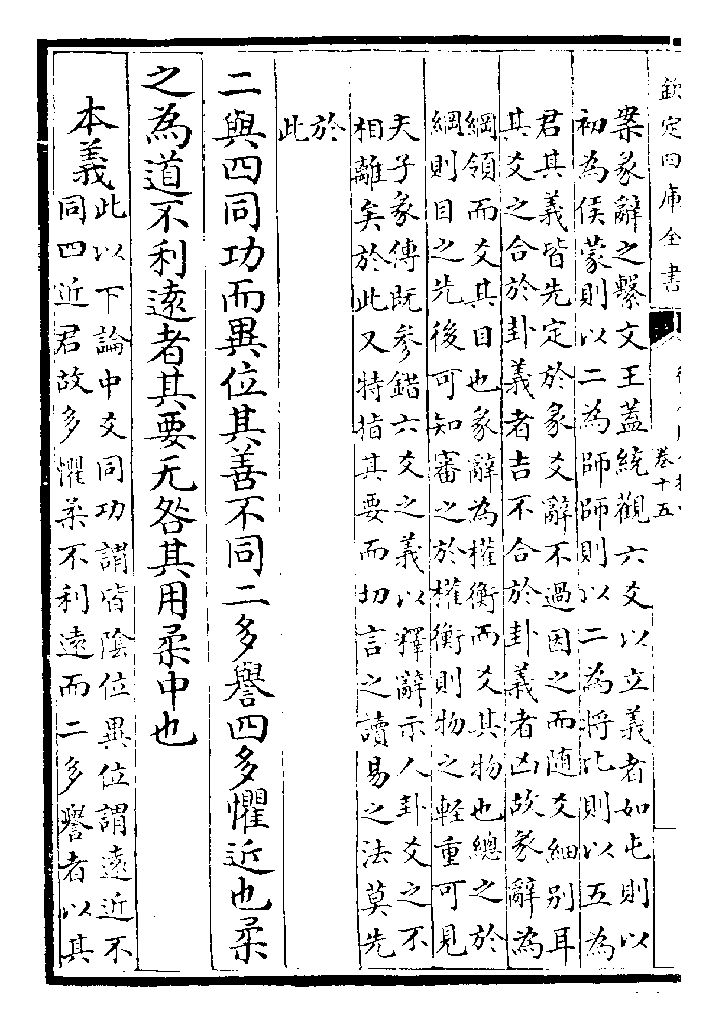 欽定四庫全書
卷十五
案彖辭之繫文王蓋統觀六爻以立義者如屯則以
初為侯蒙則以二為師師則以二為將比則以五為
君其義皆先定於彖爻辭不過因之而隨爻細别耳
其爻之合於卦義者吉不合於卦義者凶故彖辭為
綱領而爻其目也彖辭為權衡而爻其物也總之於
綱則目之先後可知審之於權衡則物之輕重可見
夫子彖傳既參錯六爻之義以釋辭示人卦爻之不
相離矣於此又特指其要而切言之讀易之法莫先
於
此
二與四同功而異位其善不同二多譽四多懼近也柔
之為道不利遠者其要无咎其用柔中也
本義
此以下論中爻同功謂皆陰位異位謂遠近不
同四近君故多懼柔不利遠而二多譽者以其